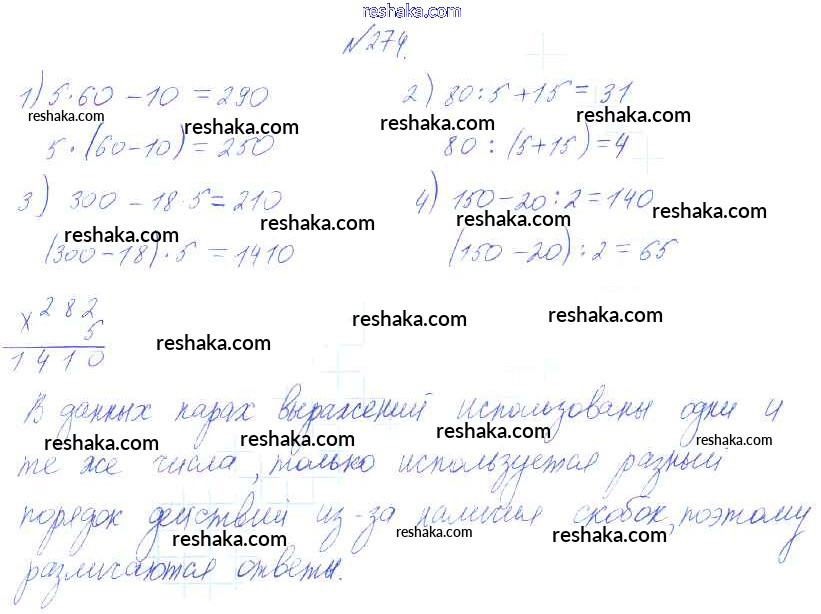 reshaka.com
№274.
1) 5·60 – 10 = 290 2) 80:5 + 15 = 31
reshaka.com reshaka.com reshaka.com reshaka.com
5·(60–10) = 250 80 : (5+15) = 4
3) 300 – 18·5 = 210 4) 150 – 20:2 = 140
reshaka.com reshaka.com reshaka.com reshaka.com
(300 – 18)·5 = 1410 (150 – 20) : 2 = 65
× 282
5
1410
reshaka.com reshaka.com reshaka.com
В данных парах выражений использованы одни и
reshaka.com reshaka.com reshaka.com reshaka.com
те же числа, только используется разный
порядок действий из-за наличия скобок, поэтому
reshaka.com reshaka.com reshaka.com reshaka.com
различаются ответы.
reshaka.com reshaka.com reshaka.com reshaka.com